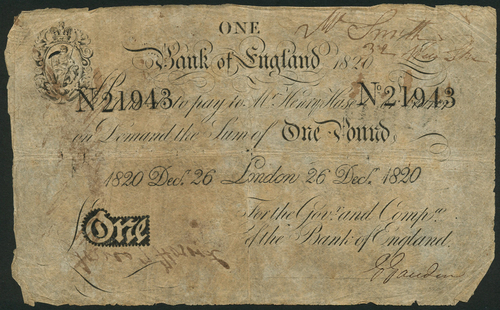 ONE
Mr Smith
Bank of England 1820
32
No 21943 to pay to Mr Henry Hase No 21943
on Demand the Sum of One Pound
1820 Decr. 26 London 26 Decr. 1820
For the Govr. and Compa. of the Bank of England.
One